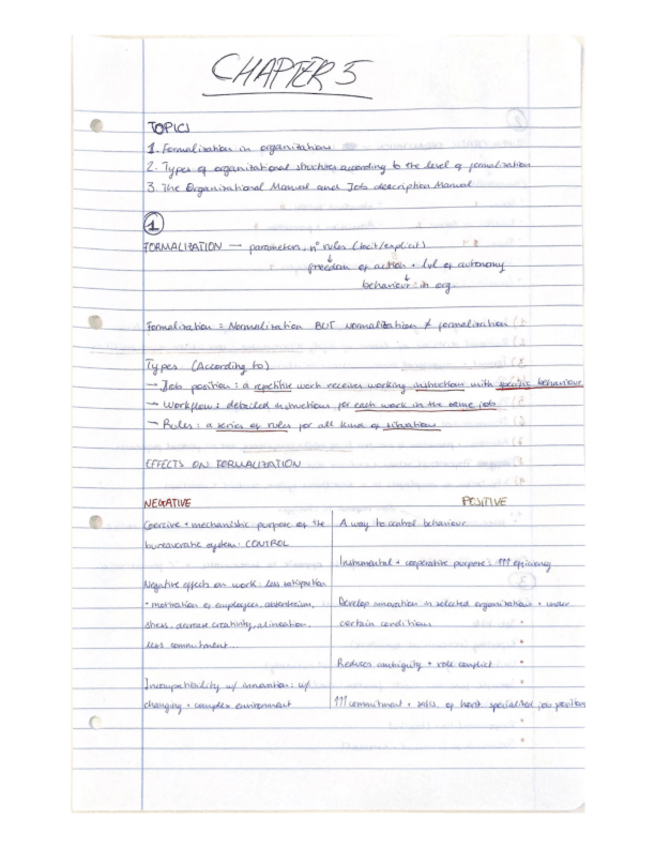 CHAPTER 5
TOPICS
1. Formalization in organizations
2. Types of organizational structures according to the level of formalization
3. The Organizational Manual and Job description Manual
1
FORMALIZATION → parameters, nº rules (tacit/explicit)
↓
freedom of action + lvl of autonomy
↓
behaviour in org.
Formalization = Normalization BUT normalization ≠ formalization
Types (According to)
→ Job position: a repetitive work receives working instructions with specific behaviour
→ Workflow: detailed instructions for each work in the same job
→ Rules: a series of rules for all kind of situations
EFFECTS ON FORMALIZATION
NEGATIVE
Coercive + mechanistic purpose of the
bureaucratic system: CONTROL
Negative effects on work: less satisfaction
+ motivation of employees, absenteeism,
stress, decrease creativity, alineation,
less commitment...
Incompatibility w/ innovation: w/
changing + complex environment
POSITIVE
A way to control behaviour
Instrumental + cooperative purpose: ↑↑↑ efficiency
Develop innovation in selected organizations + under
certain conditions
Reduces ambiguity + role conflict
↑↑↑ commitment + satis. of specialized job position